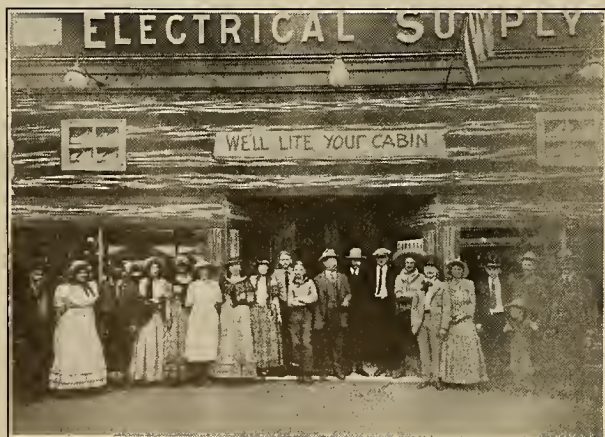 ELECTRICAL SUPPLY
WE'LL LITE YOUR CABIN